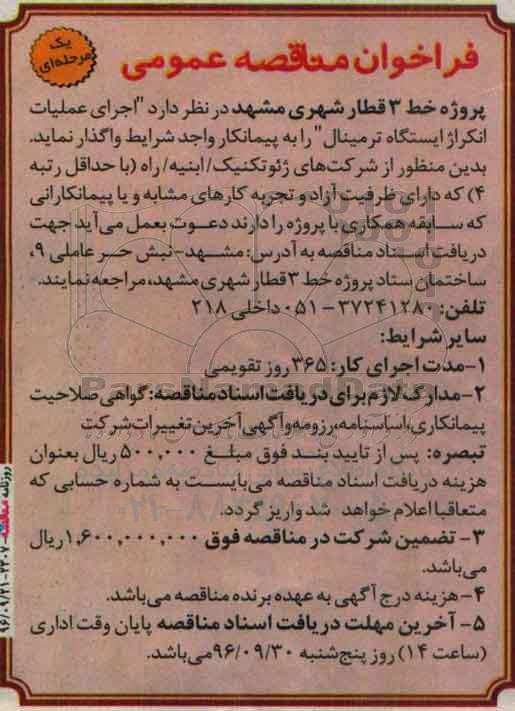 یک
مرحله‌ای
فراخوان مناقصه عمومی
پروژه خط ۳ قطار شهری مشهد در نظر دارد "اجرای عملیات
انکراژ ایستگاه ترمینال" را به پیمانکار واجد شرایط واگذار نماید.
بدین منظور از شرکت‌های ژئوتکنیک/ ابنیه/ راه (با حداقل رتبه
۴) که دارای ظرفیت آزاد و تجربه کارهای مشابه و یا پیمانکارانی
که سابقه همکاری با پروژه را دارند دعوت بعمل می‌آید جهت
دریافت اسناد مناقصه به آدرس: مشهد- نبش حر عاملی ۹،
ساختمان ستاد پروژه خط ۳ قطار شهری مشهد، مراجعه نمایند.
تلفن: ۳۷۲۴۱۲۸۰-۰۵۱ داخلی ۲۱۸
سایر شرایط:
۱-مدت اجرای کار: ۳۶۵ روز تقویمی
۲-مدارک لازم برای دریافت اسناد مناقصه: گواهی صلاحیت
پیمانکاری، اساسنامه، رزومه و آگهی آخرین تغییرات شرکت
تبصره: پس از تایید بند فوق مبلغ ۵۰۰,۰۰۰ ریال بعنوان
هزینه دریافت اسناد مناقصه می‌بایست به شماره حسابی که
متعاقبا اعلام خواهد شد واریز گردد.
۳- تضمین شرکت در مناقصه فوق ۱,۶۰۰,۰۰۰,۰۰۰ ریال
می‌باشد.
۴-هزینه درج آگهی به عهده برنده مناقصه می‌باشد.
۵- آخرین مهلت دریافت اسناد مناقصه پایان وقت اداری
(ساعت ۱۴) روز پنج‌شنبه ۹۶/۰۹/۳۰ می‌باشد.
روزنامه مناقصه ۲۳۰۷-۹۶/۰۹/۲۱
ParsNamadData